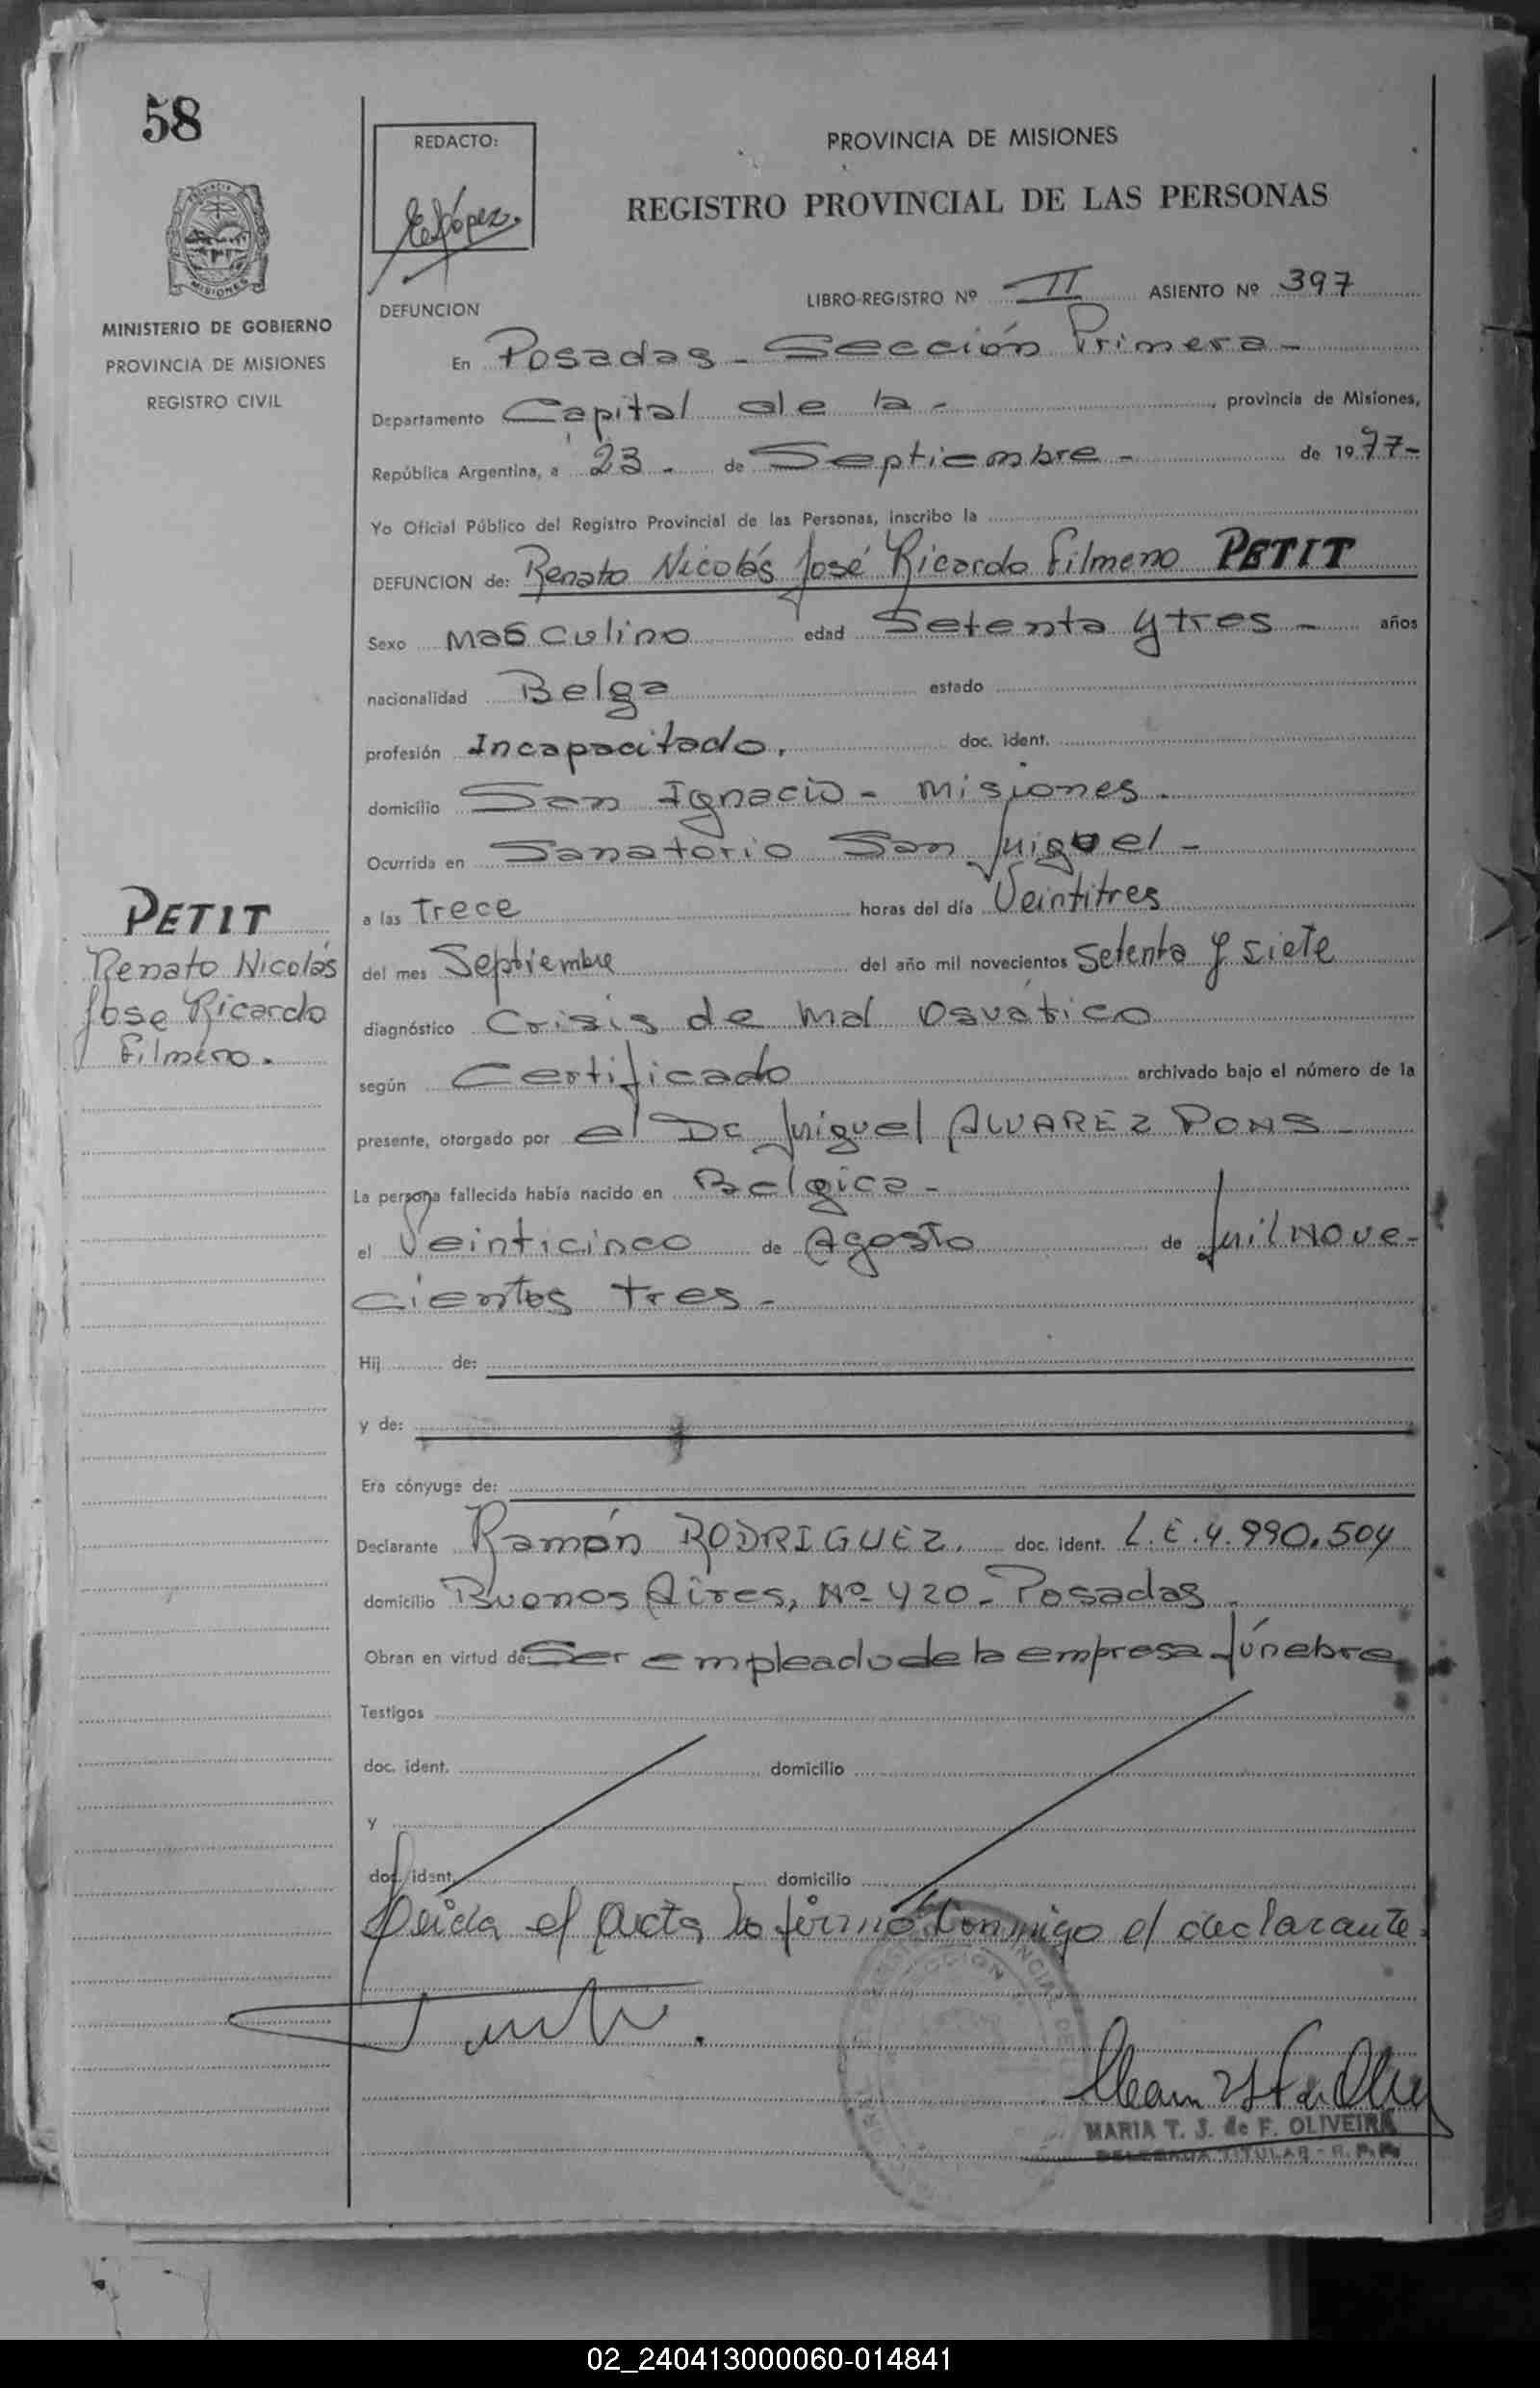 58
REDACTO:
PROVINCIA DE MISIONES
REGISTRO PROVINCIAL DE LAS PERSONAS
MISIONES
MINISTERIO DE GOBIERNO
PROVINCIA DE MISIONES
REGISTRO CIVIL
DEFUNCION
LIBRO-REGISTRO Nº II ASIENTO Nº 397
En Posadas - Sección Primera -
Departamento Capital de la - , provincia de Misiones,
República Argentina, a 23 - de Septiembre - de 1977-
Yo Oficial Público del Registro Provincial de las Personas, inscribo la
DEFUNCION de: Renato Nicolás José Ricardo Filmeno PETIT
Sexo Masculino edad Setenta y tres - años
nacionalidad Belga estado
profesión Incapacitado, doc. ident.
domicilio San Ignacio - Misiones.
Ocurrida en Sanatorio San Miguel -
a las trece horas del día Veintitres
del mes Septiembre del año mil novecientos Setenta y siete
diagnóstico Crisis de mal
según Certificado archivado bajo el número de la
presente, otorgado por el Dr Miguel ALVAREZ PONS -
La persona fallecida había nacido en Belgica -
el Veinticinco de Agosto de Mil Nove-
cientos tres -
Hij de:
y de:
Era cónyuge de:
Declarante Ramón RODRIGUEZ. doc. ident. L.E.4.990.504
domicilio Buenos Aires, Nº 420 - Posadas.
Obran en virtud de: Ser empleado de la empresa fúnebre
Testigos
doc. ident. domicilio
y
doc. ident. domicilio
Leida el Acta, la firmó Conmigo el declarante.
MARIA T. J. de F. OLIVEIRA
DELEGADA TITULAR - R. P. P.
PETIT
Renato Nicolás
José Ricardo
Filmeno.
02_240413000060-014841